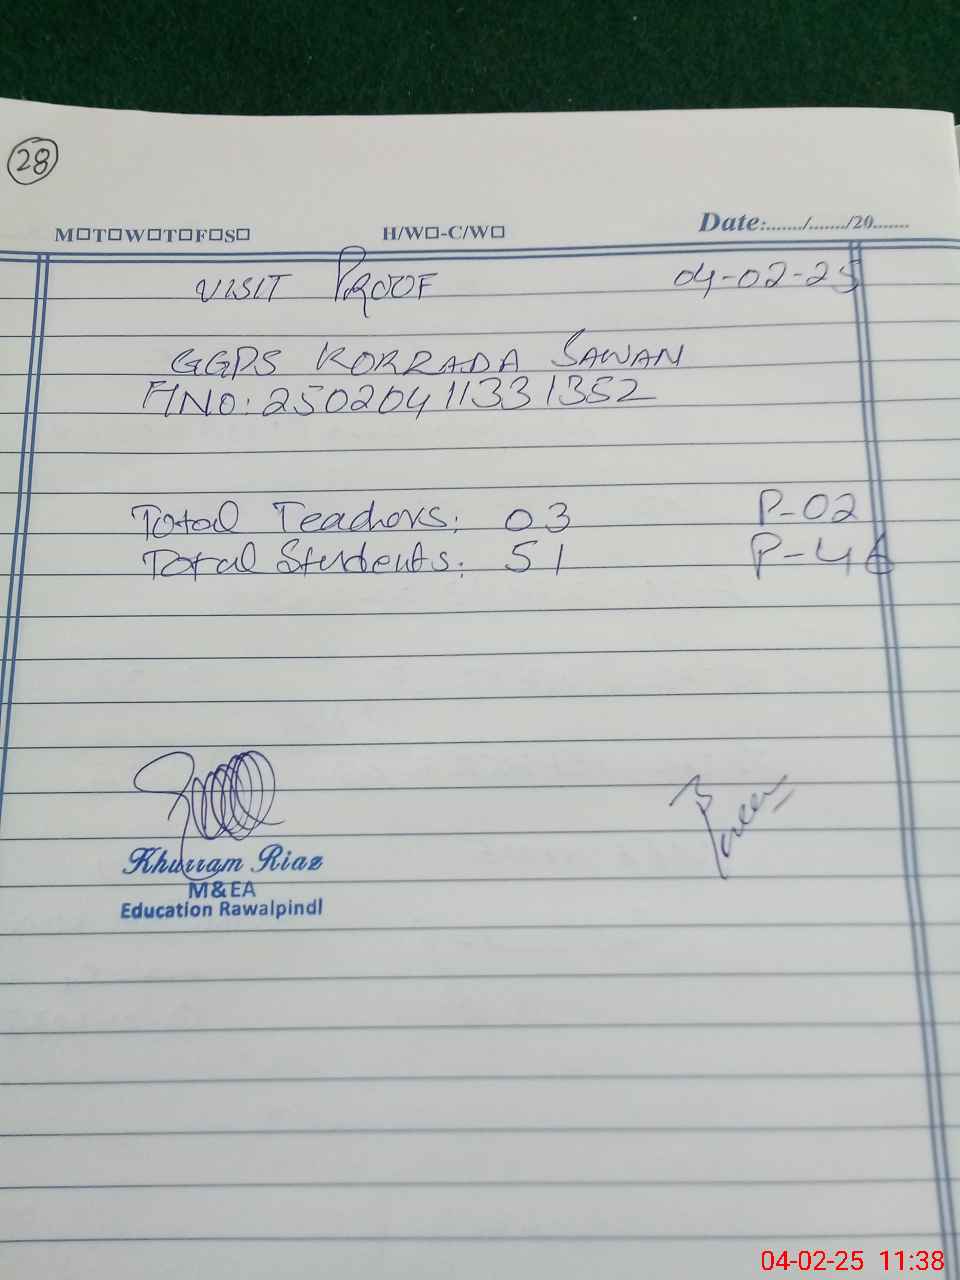 28
M□T□W□T□F□S□ H/W□-C/W□ Date:......./......./20.......
VISIT PROOF 04-02-25
GGPS KORRADA SAWAN
HNO: 25020411331352
Total Teachers: 03 P-02
Total Students: 51 P-46
Khurram Riaz
M&EA
Education Rawalpindi
04-02-25 11:38